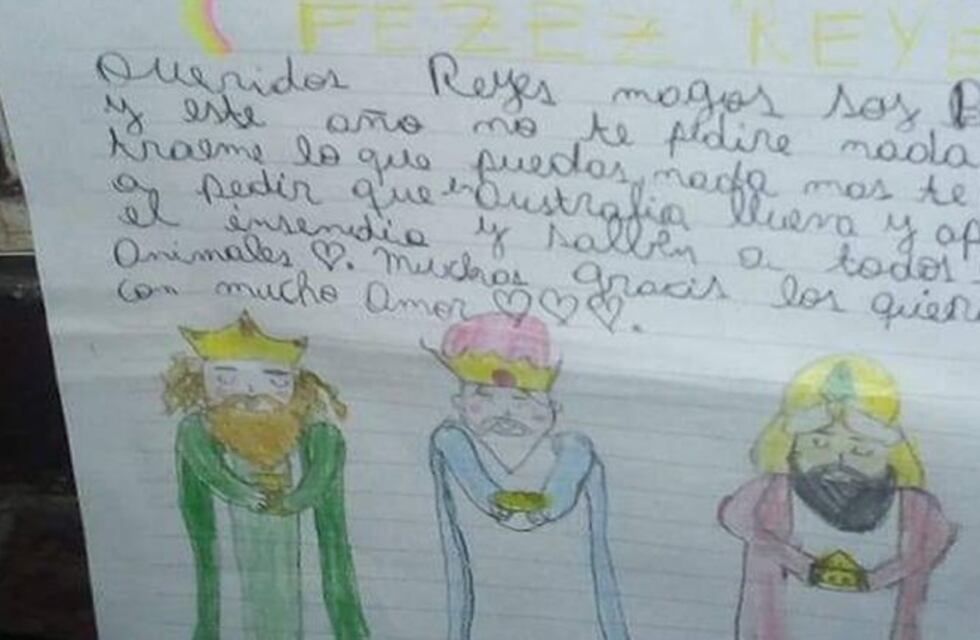 FEZEZ REYE
Queridos Reyes magos soy
y este año no te pedire nada
traeme lo que puedas, nada mas te
a pedir que en Australia llueva y ap
el insendio y salben a todos
Animales ♡. Muchas gracis los quier
con mucho Amor ♡♡♡.